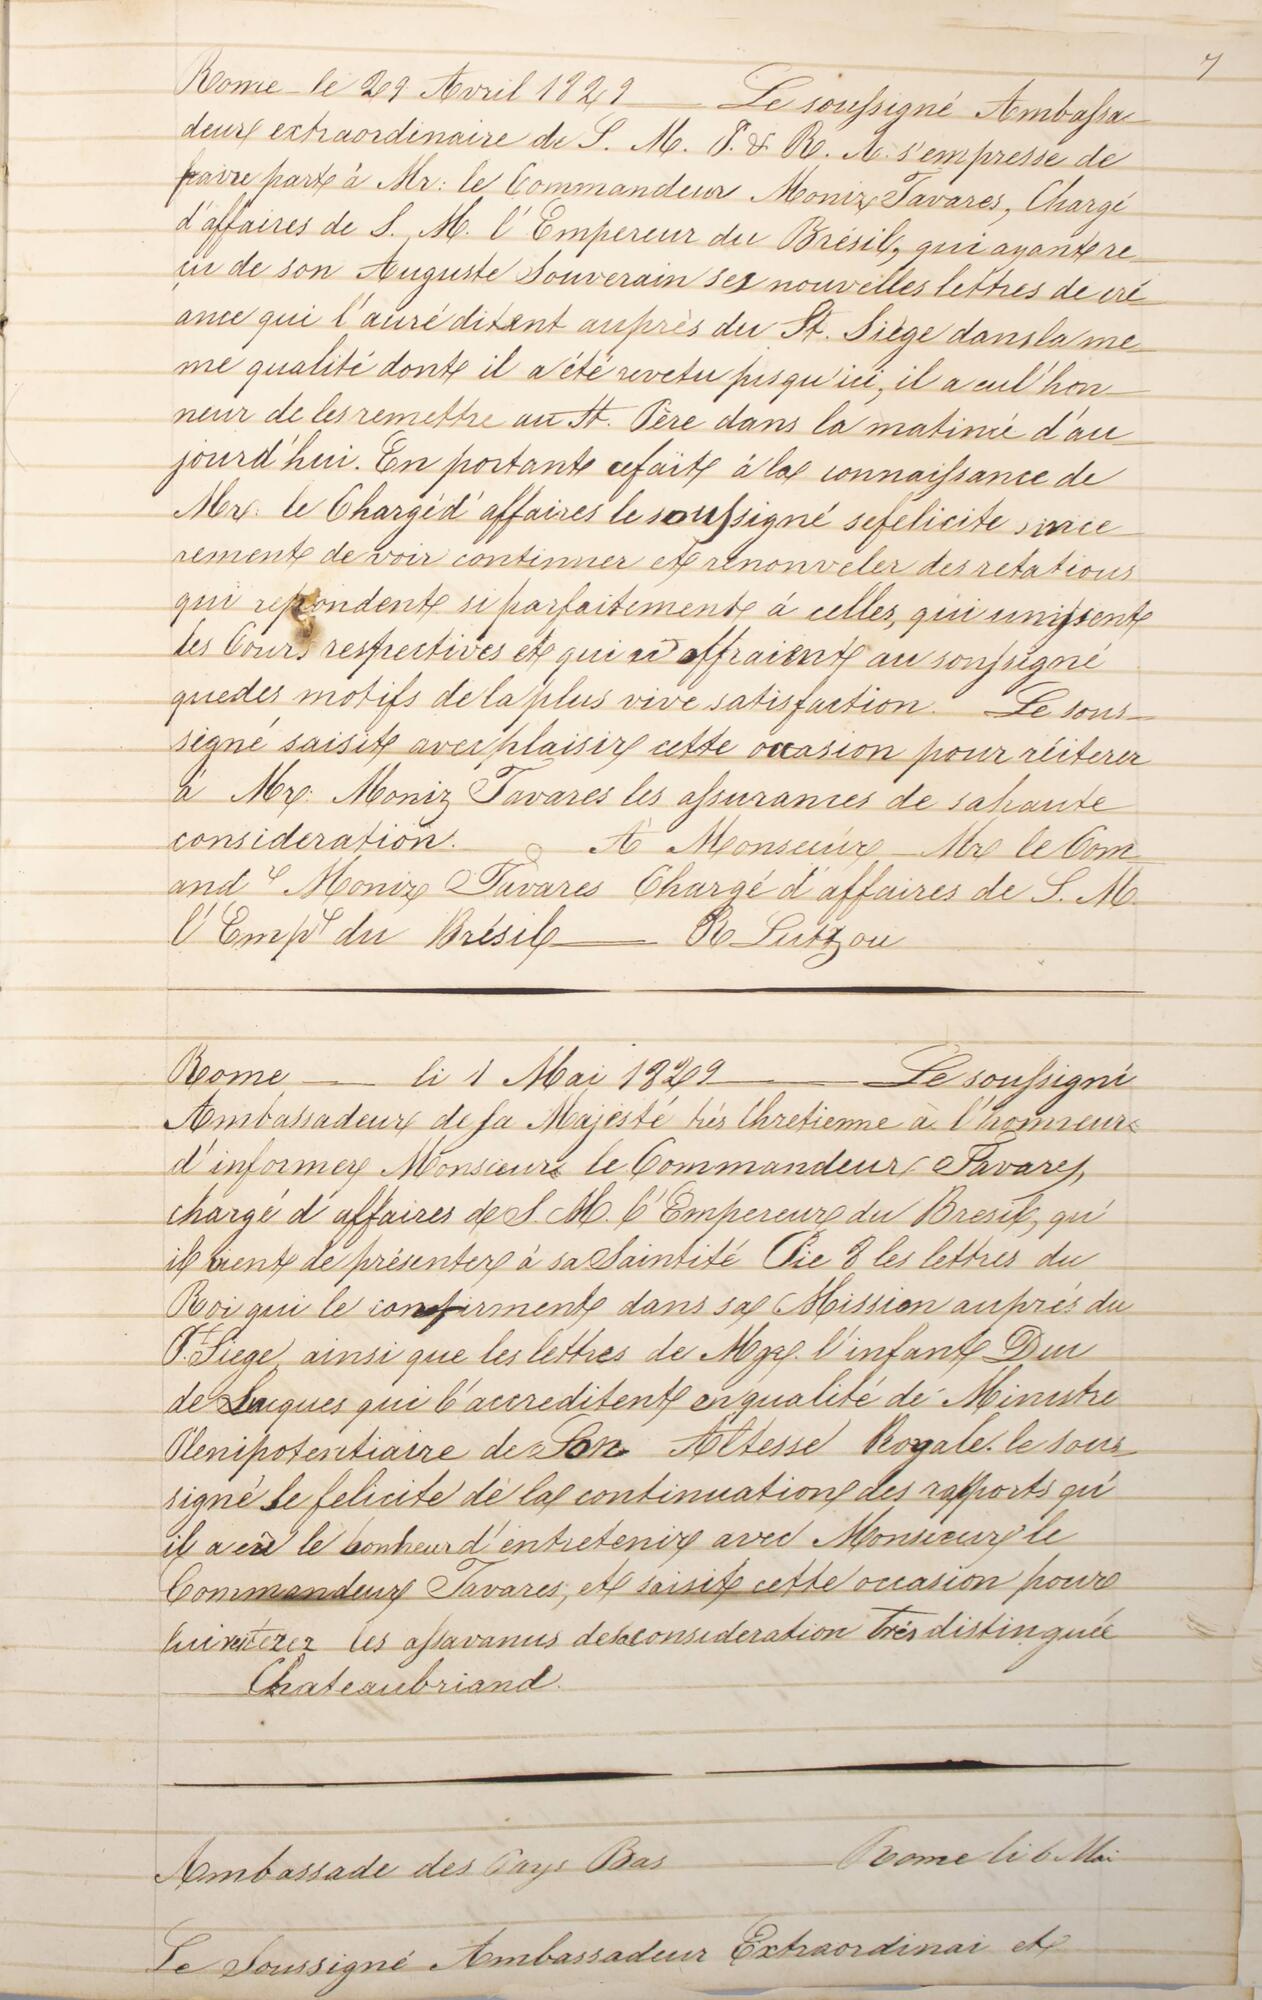 7
Rome le 29 Avril 1829 — Le soussigné Ambassa
deur extraordinaire de S. M. I. & R. A. s'empresse de
faire part à Mr: le Commandeur Moniz Tavares, Chargé
d'affaires de S. M. l'Empereur du Brésil, qui ayant re
çu de son Auguste Souverain ses nouvelles lettres de cré
ance qui l'accréditent auprès du St. Siège dans la me
me qualité dont il a été revetu jusqu'ici, il a eu l'hon
neur de les remettre au St. Père dans la matinée d'au
jourd'hui. En portant ce fait à la connaissance de
Mr. le Chargé d'affaires le soussigné se felicite since
rement de voir continuer et renouveler des relations
qui repondent si parfaitement à celles, qui unissent
les Cours respectives et qui n'offraient au soussigné
que des motifs de la plus vive satisfaction. Le sous
signé saisit avec plaisir cette occasion pour réiterer
à Mr. Moniz Tavares les assurances de sa haute
consideration. A Monsieur Mr le Com
and r Moniz Tavares Chargé d'affaires de S. M.
l'Empr du Brésil — R Lutzou
Rome — li 1 Mai 1829 — Le soussigné
Ambassadeur de sa Majesté très Chretienne à l'honneur
d'informer Monsieur le Commandeur Tavares,
chargé d'affaires de S. M. l'Empereur du Bresil, qu'
il vient de présenter à sa Sainteté Pie 8 les lettres du
Roi qui le confirment dans sa Mission auprés du
St. Siege, ainsi que les lettres de Mgr. l'infant Duc
de Lucques qui l'accreditent en qualité de Ministre
Plenipotentiaire de Son Altesse Royale. le sous
signé se felicite de la continuation des rapports qu'
il a eu le bonheur d'entretenir avec Monsieur le
Commandeur Tavares, et saisit cette occasion pour
lui reiterer les assurances de sa consideration très distinguée
Chateaubriand.
Ambassade des Pays Bas — Rome li 6 Mai
Le Soussigné Ambassadeur Extraordinai et